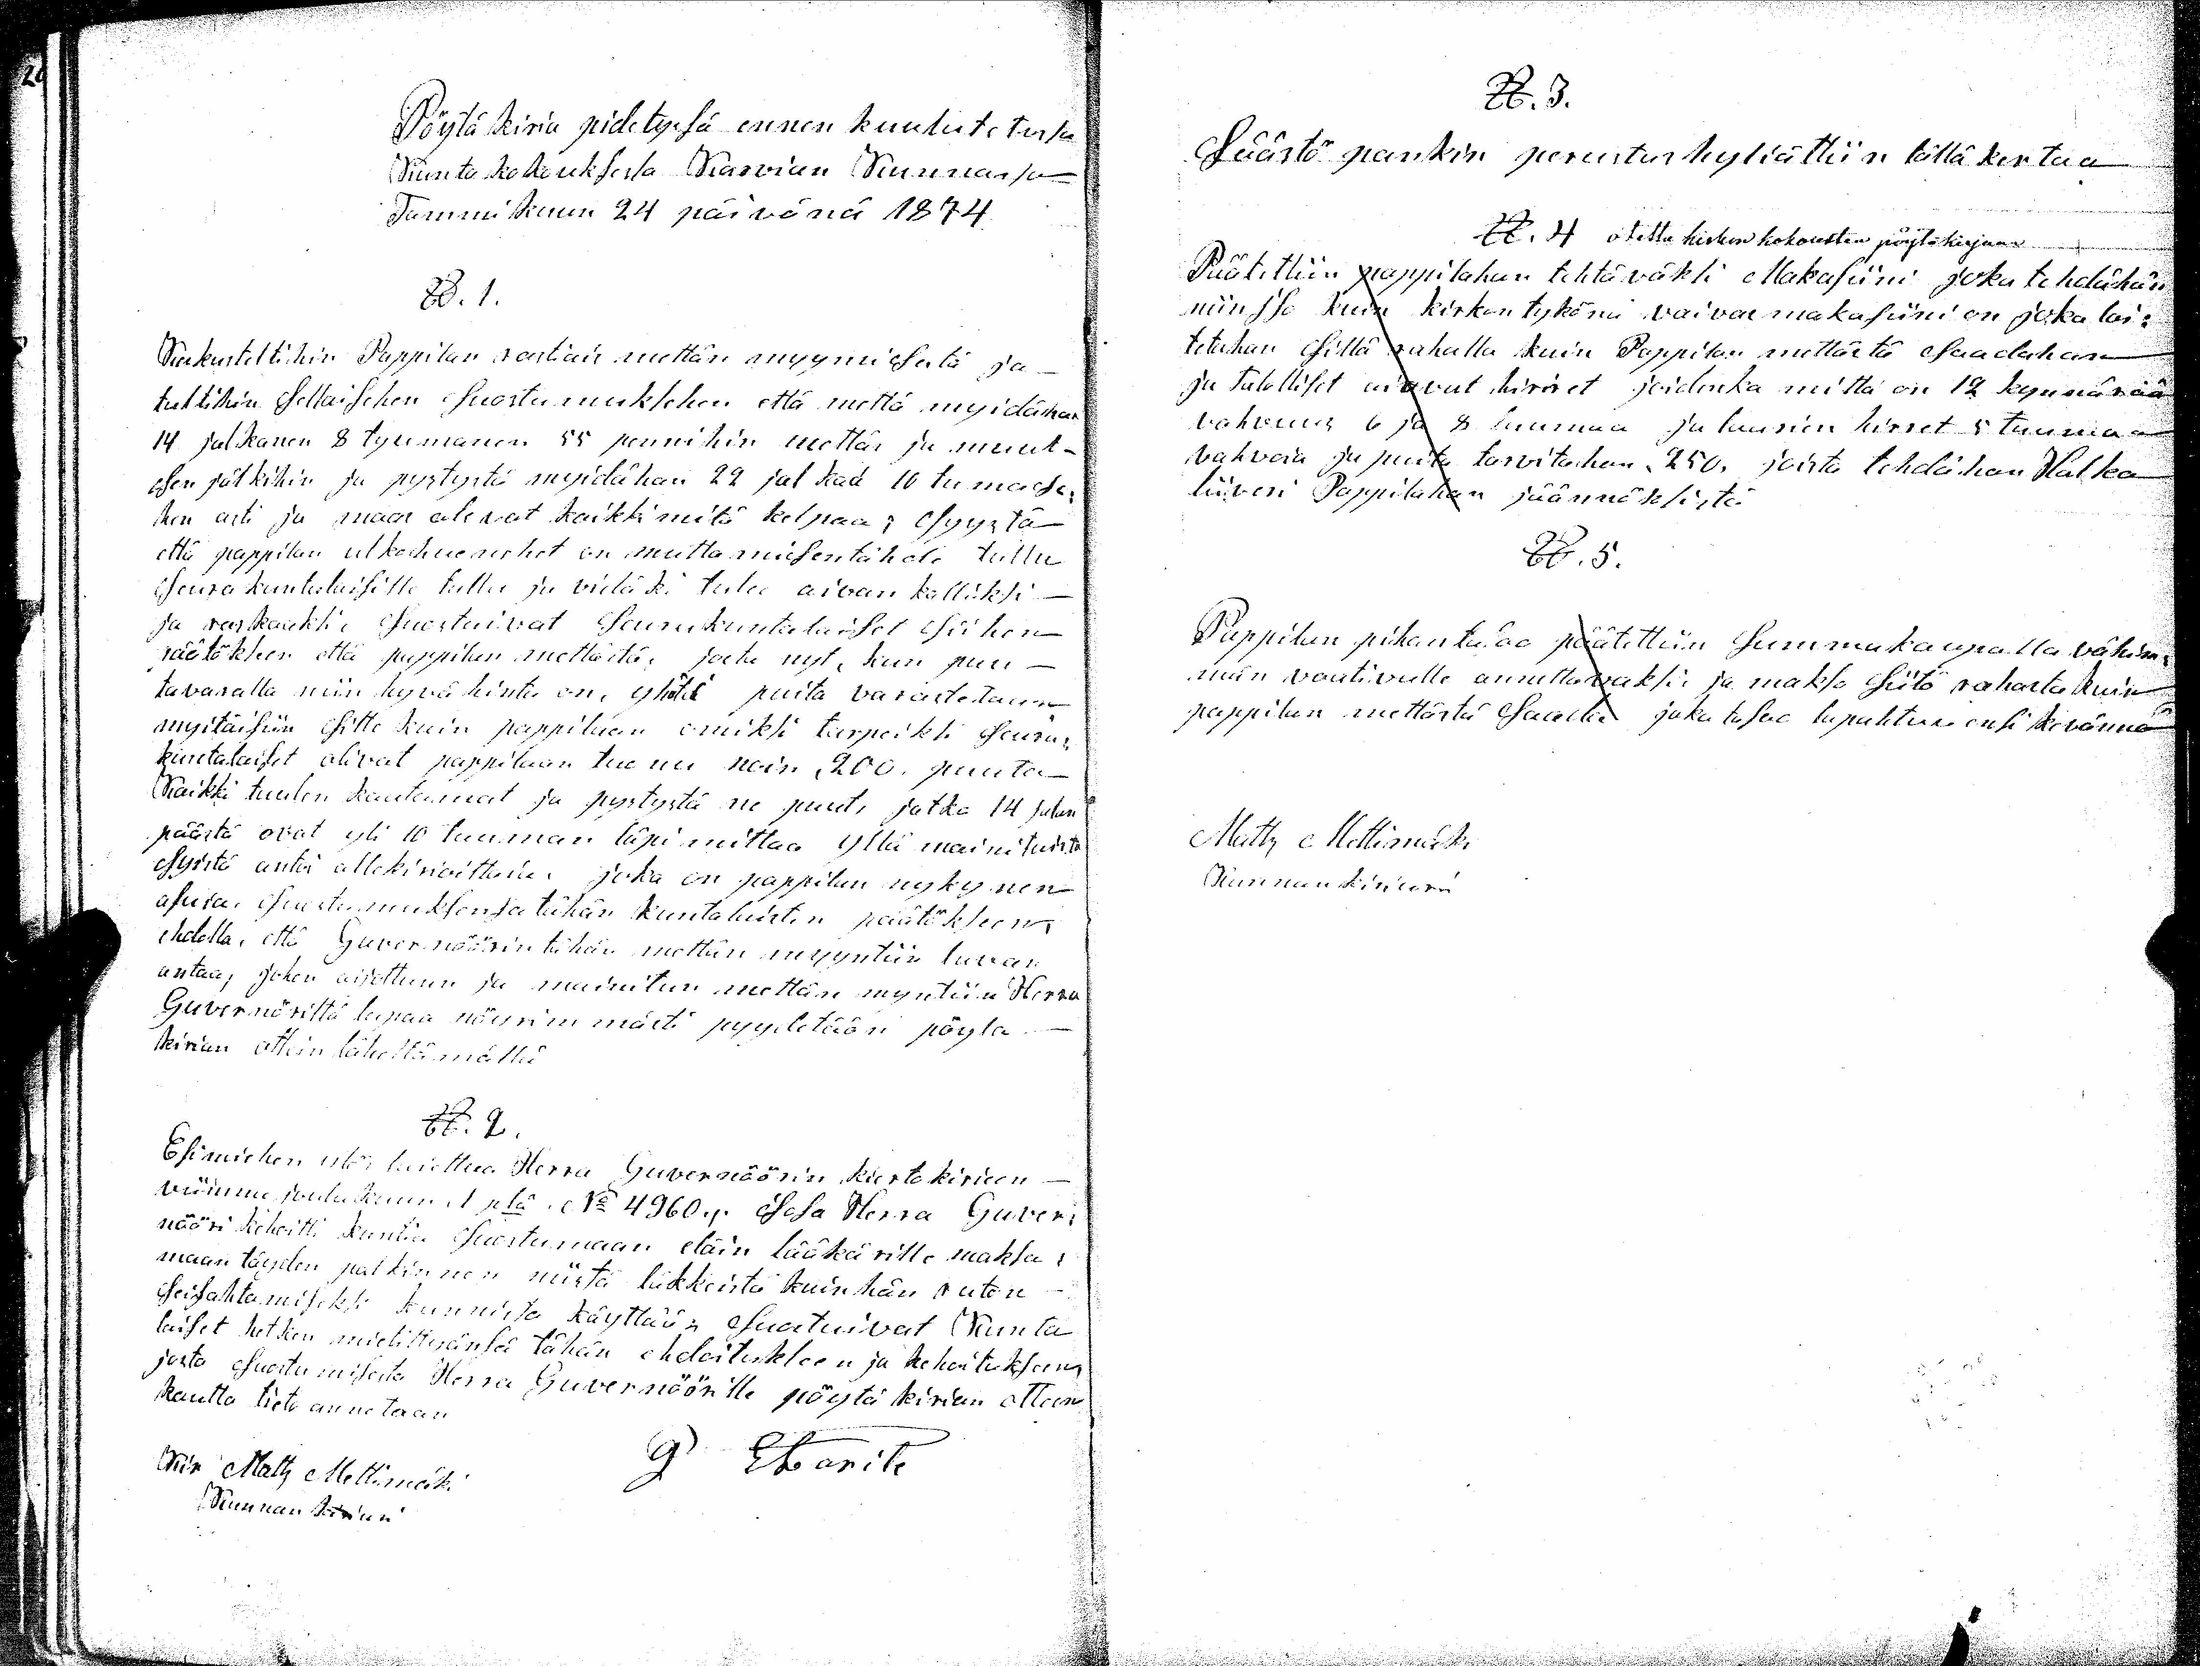 20
Pöytäkiria pidetysä ennen kuulutetusa
Kunta kokouksesta Karvian Kunnassa
Tammikuun 24 päivänä 1874
§. 1.
Keskusteltihin Pappilan vastais mettän myymisestä ja
tultihin sellaisehen suostumuksehen että mettä myidähän
14 jalkanen 8 tyumanen 55 pennihin mettäs ja muut-
sen jälkihin ja pystystä myidähän 22 jalkaa 10 tumaase,
hen asti ja maas olevat kaikki mitä kelpaa; Syystä
että pappilan ulkohuonehet on muttamisentähde tullu
Seurakuntalaisille tullu ja vieläki tulee aivan kalliiksi
ja raskaaksi, suostuivat Seurakuntalaiset siihen
päätöksen että pappilan mettästä, josta nyt, kun puu
tavaralla niin hyvä hinta on, yhtä puita varastetaan
myitäisiin sille kuin pappilaan omiksi tarpeiksi Seura,
kuntalaiset olivat pappilaan tuonu noin 200. puuta
Kaikki tuulen kaatamat ja pystystä ne puut, jotka 14 jalan
päästä ovat yli 10 tuuman läpi mittaa Yllä mainituista
syistä antoi allekirioittain, joka on pappilan nykynen
asuja, suostumuksensa tähän kuntalaisten päätökseen,
ehdolla, että Guvernöörin tähän mettän myyntiin luvan
antaa, johon aijottuun ja mainitun mettän myntiin Herra
Guvernöriltä lupaa nöyrimmästi pyydetään pöyta
kirian ottein lähettämällä
§. 2.
Esimiehen ylös luettua Herra Guvernöörin kiertokirieen
viimme joulukuun 1 ptä No 4960, jossa Herra Guver,
nööri kehoitti kuntia suostumaan eläin lääkärille maksa,
maan täyden palkinnon niistä liikkeistä kuin hän ruton
seisahtamiseksi kunnista käyttää, suostuivat Kunta
laiset hetken mietittyänsä tähän ehdoitukseen ja kehoitukseen,
josta suostumisesta Herra Guvernöörille pöytä kirian otteen
kautta tieto annetaan
Matts Mettimäki
Kunnan kiriuri
§. 3.
Säästö pankin perustus hyliättiin tällä kertaa
§. 4 otettu kirkon kokousten pöytäkirjaan
Päätettiin pappilahan tehtäväksi Makasiini joka tehdähän
niin iso kuin kirkon tykönä vaivas makasiini on joka lai,
tetahan sillä rahalla kuin Pappilan mettästä saadahan
ja talolliset aiavat hirret joidenka mitta on 12 kynnärää
vahvuus 6 ja 8 tuumaa ja luusien hirret 5 tuumaa
vahvoja ja puita tarvitahan 250, joista tehdähän Halko
liiveri Pappilahan jäännöksistä
§. 5.
Pappilan pihantaaa päätettiin Summakaupalla vähim,
män vaativalle annettavaksi, ja maksa siitä rahasta kuin
pappilan mettästä saada joka tulee tapahtua ensi kevännä
Matts Mettimäki
Kunnan kiriuri